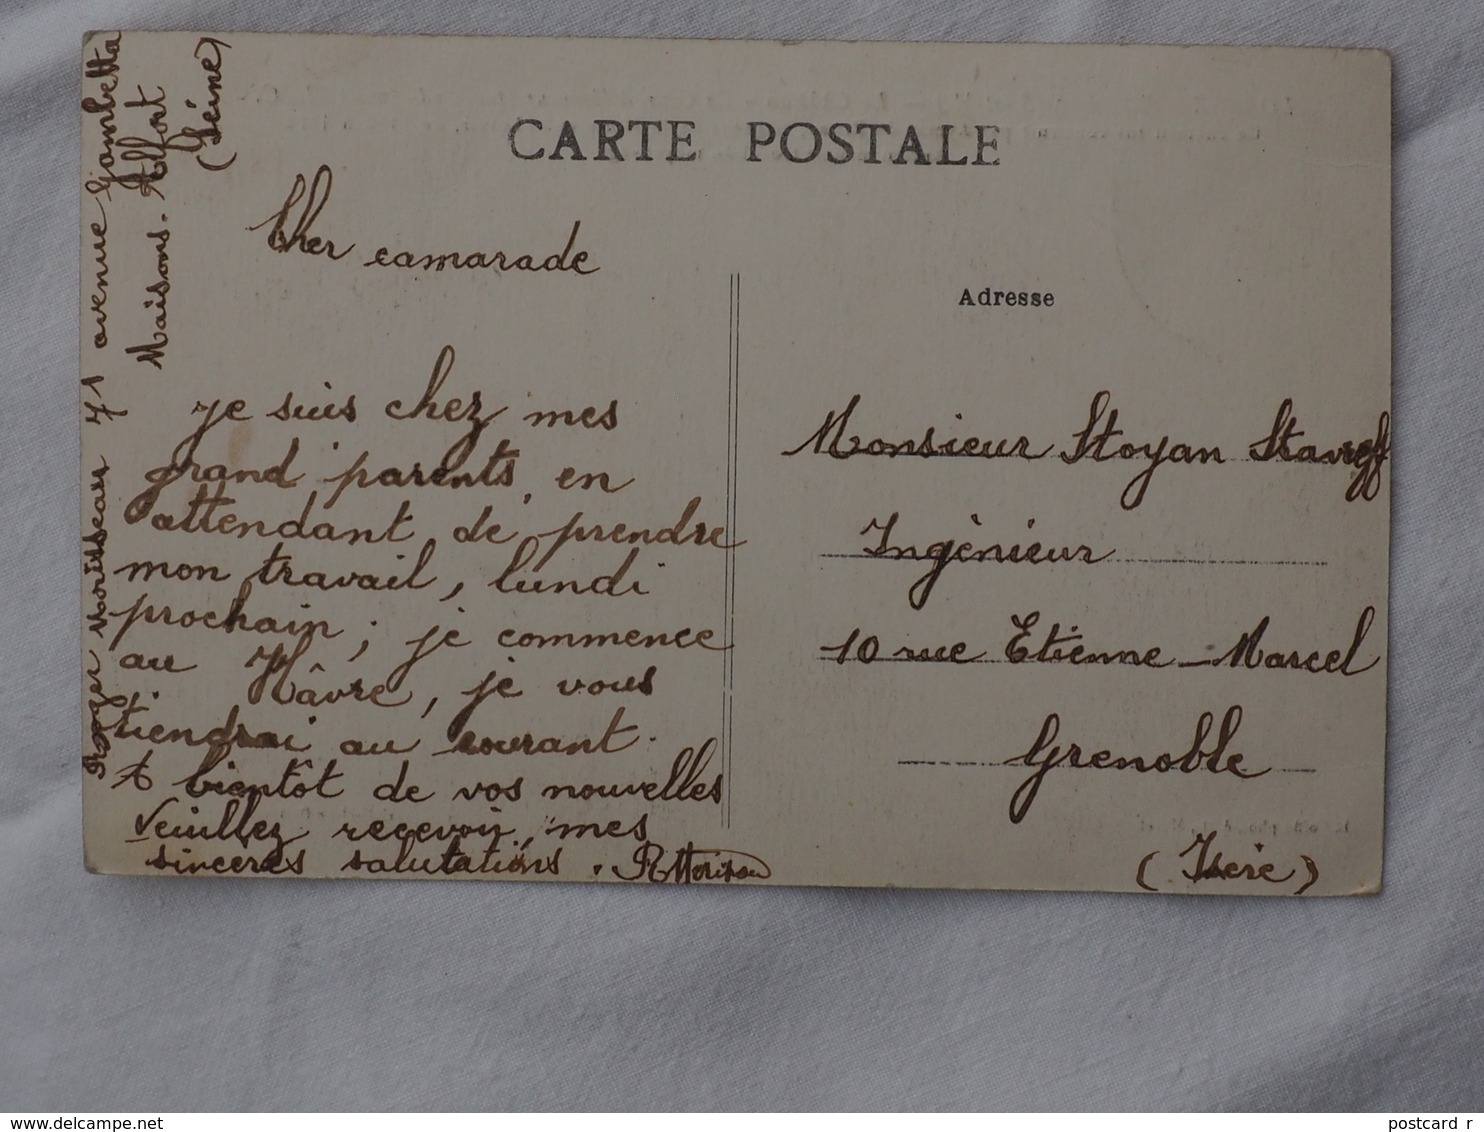 CARTE POSTALE
Roger 71 avenue Gambetta
Maisons-Alfort
(Seine)
Cher camarade
je suis chez mes
grand parents, en
attendant de prendre
mon travail, lundi
prochain ; je commence
au Hâvre, je vous
tiendrai au courant.
A bientôt de vos nouvelles
Veuillez recevoir, mes
sincères salutations.
Adresse
Monsieur Stoyan Stavreff
Ingènieur
10 rue Etienne-Marcel
Grenoble
(Isère)
www.delcampe.net
postcard_r